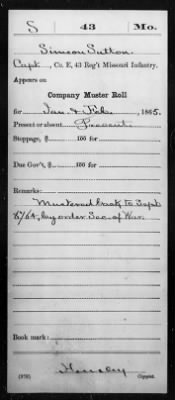 S 43 Mo.
Simeon Sutton
Capt, Co. E, 43 Reg't Missouri Infantry.
Appears on
Company Muster Roll
for Jan. & Feb., 1865.
Present or absent Present
Stoppage, $ 100 for
Due Gov't, $ 100 for
Remarks:
Mustered back to Sept
8/64, by order Sec. of War.
Book mark:
Hensley
(858) Copyist.